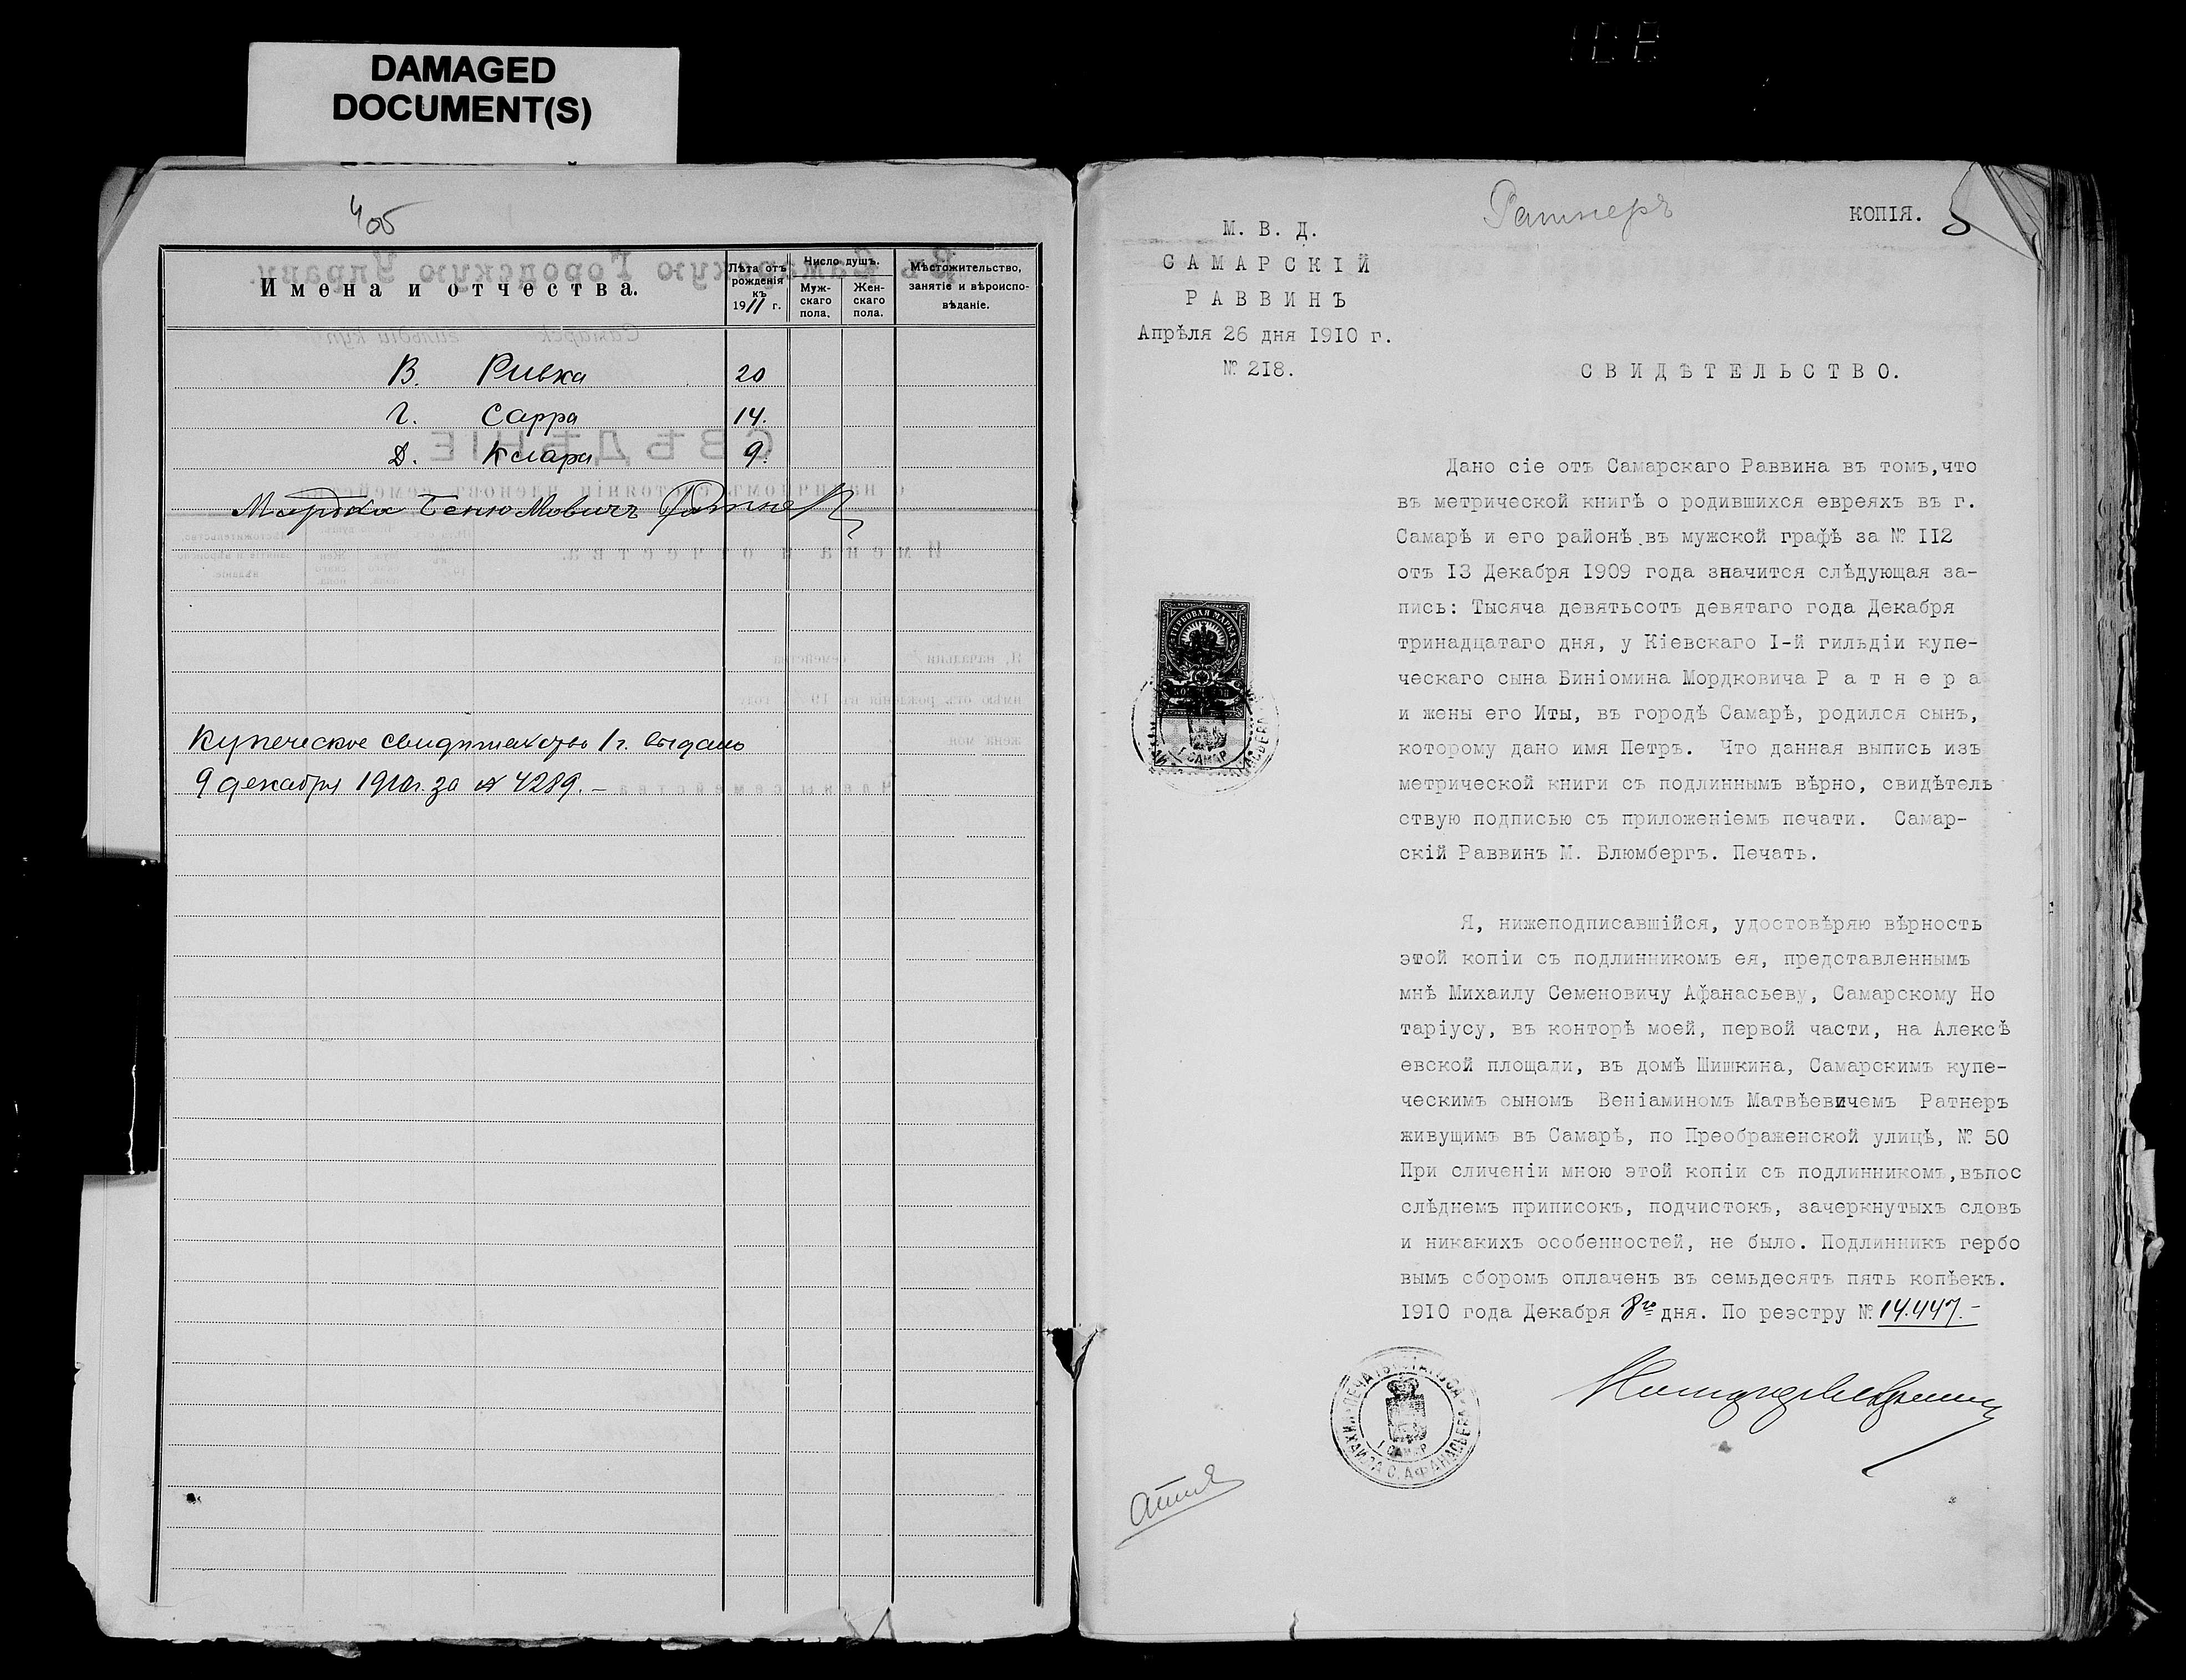 DAMAGED
DOCUMENT(S)
4об
Имена и отчества.
Лѣта отъ рожденія къ 1911 г.
Число душъ.
Мужскаго пола.
Женскаго пола.
Мѣстожительство, занятіе и вѣроисповѣданіе.
В. Ривка 20
Г. Сарра 14.
Д. Клара 9.
Мордко Бенюмовичъ Ратнеръ
Купеческое свидѣтельство 1 г. выдано
9 декабря 1910г. за № 4289. –
Ратнеръ
КОПІЯ. 5
М. В. Д.
САМАРСКІЙ
РАВВИНЪ
Апрѣля 26 дня 1910 г.
№ 218.
СВИДѢТЕЛЬСТВО.
Дано сіе отъ Самарскаго Раввина въ томъ,что
въ метрической книгѣ о родившихся евреяхъ въ г.
Самарѣ и его районѣ въ мужской графѣ за № 112
отъ 13 Декабря 1909 года значится слѣдующая за-
пись: Тысяча девятьсотъ девятаго года Декабря
тринадцатаго дня, у Кіевскаго I-й гильдіи купе-
ческаго сына Биніомина Мордковича Ратнера
и жены его Иты, въ городѣ Самарѣ, родился сынъ,
которому дано имя Петръ. Что данная выпись изъ
метрической книги съ подлиннымъ вѣрно, свидѣтель
ствую подписью съ приложеніемъ печати. Самар-
скій Раввинъ М. Блюмбергъ. Печать.
ГЕРБОВАЯ МАРКА
Г. САМАР.
Я, нижеподписавшійся, удостовѣряю вѣрность
этой копіи съ подлинникомъ ея, представленнымъ
мнѣ Михаилу Семеновичу Афанасьеву, Самарскому Но
таріусу, въ конторѣ моей, первой части, на Алексѣ
евской площади, въ домѣ Шишкина, Самарскимъ купе-
ческимъ сыномъ Веніаминомъ Матвѣевичемъ Ратнеръ
живущимъ въ Самарѣ, по Преображенской улицѣ, № 50
При сличеніи мною этой копіи съ подлинникомъ,въпос
слѣднемъ приписокъ, подчистокъ, зачеркнутыхъ словъ
и никакихъ особенностей, не было. Подлинникъ гербо
вымъ сборомъ оплаченъ въ семьдесятъ пять копѣекъ.
1910 года Декабря 8го дня. По реэстру № 14.447. –
ПЕЧАТЬ НОТАРІУСА
МИХАИЛА С. АФАНАСЬЕВА
Г. САМАР.